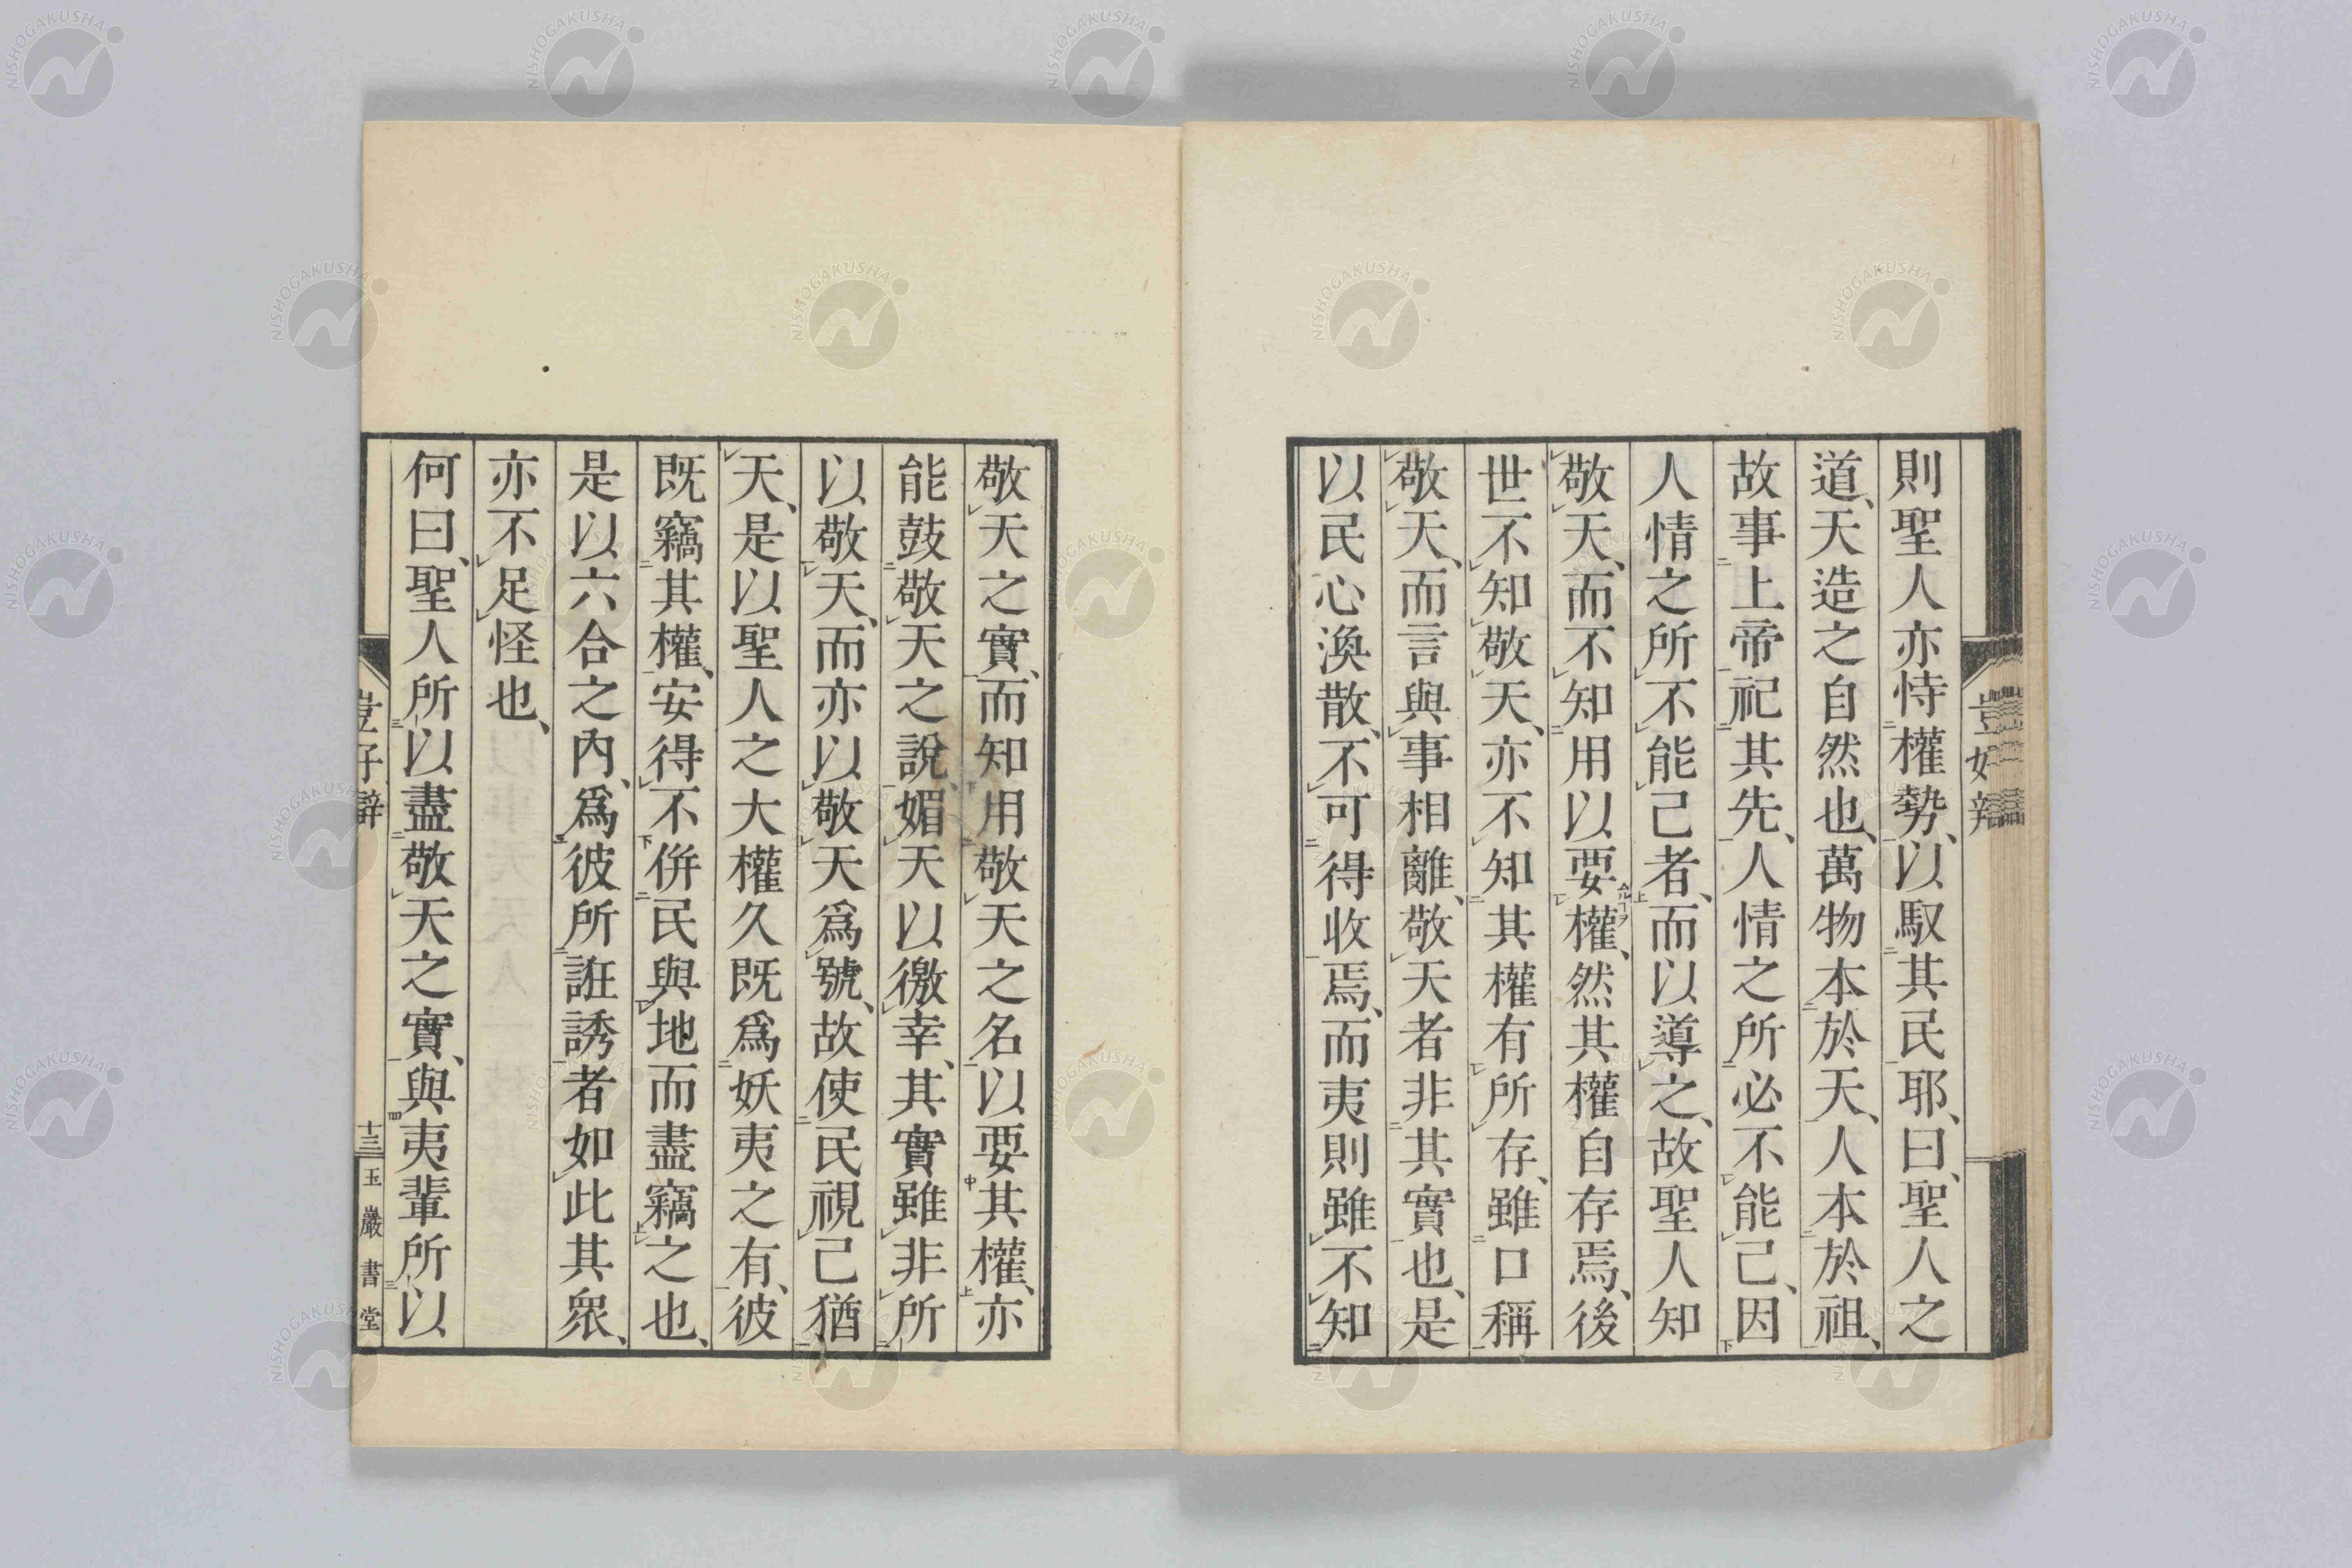 則聖人亦恃權勢、以馭其民耶、曰、聖人之
道、天造之自然也、萬物本於天、人本於祖、
故事上帝祀其先、人情之所必不能已、因
人情之所不能已者、而以導之、故聖人知
敬天、而不知用以要權、然其權自存焉、後
世不知敬天、亦不知其權有所存、雖口稱
敬天、而言與事相離、敬天者非其實也、是
以民心渙散、不可得收焉、而夷則雖不知
敬天之實、而知用敬天之名以要其權、亦
能鼓敬天之說、媚天以徼幸、其實雖非所
以敬天、而亦以敬天爲號、故使民視己猶
天、是以聖人之大權久既爲妖夷之有、彼
既竊其權、安得不併民與地而盡竊之也、
是以六合之內、爲彼所誑誘者如此其衆、
亦不足怪也、
何曰、聖人所以盡敬天之實、與夷輩所以
十三
玉巖書堂
NISHOGAKUSHA